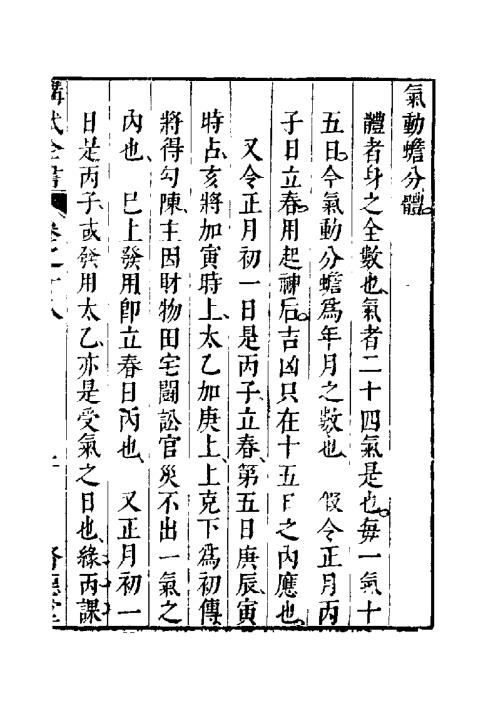 氣動蟾分體
體者身之全數也氣者二十四氣是也每一氣十
五日今氣動分蟾為年月之數也　假令正月丙
子日立春用起神后吉凶只在十五日之內應也
又令正月初一日是丙子立春第五日庚辰寅
時占亥將加寅時上太乙加庚上上克下為初傳
將得勾陳主因財物田宅鬪訟官災不出一氣之
內也　巳上發用即立春日丙也　又正月初一
日是丙子或發用太乙亦是受氣之日也緣丙課
武全書　卷之十八